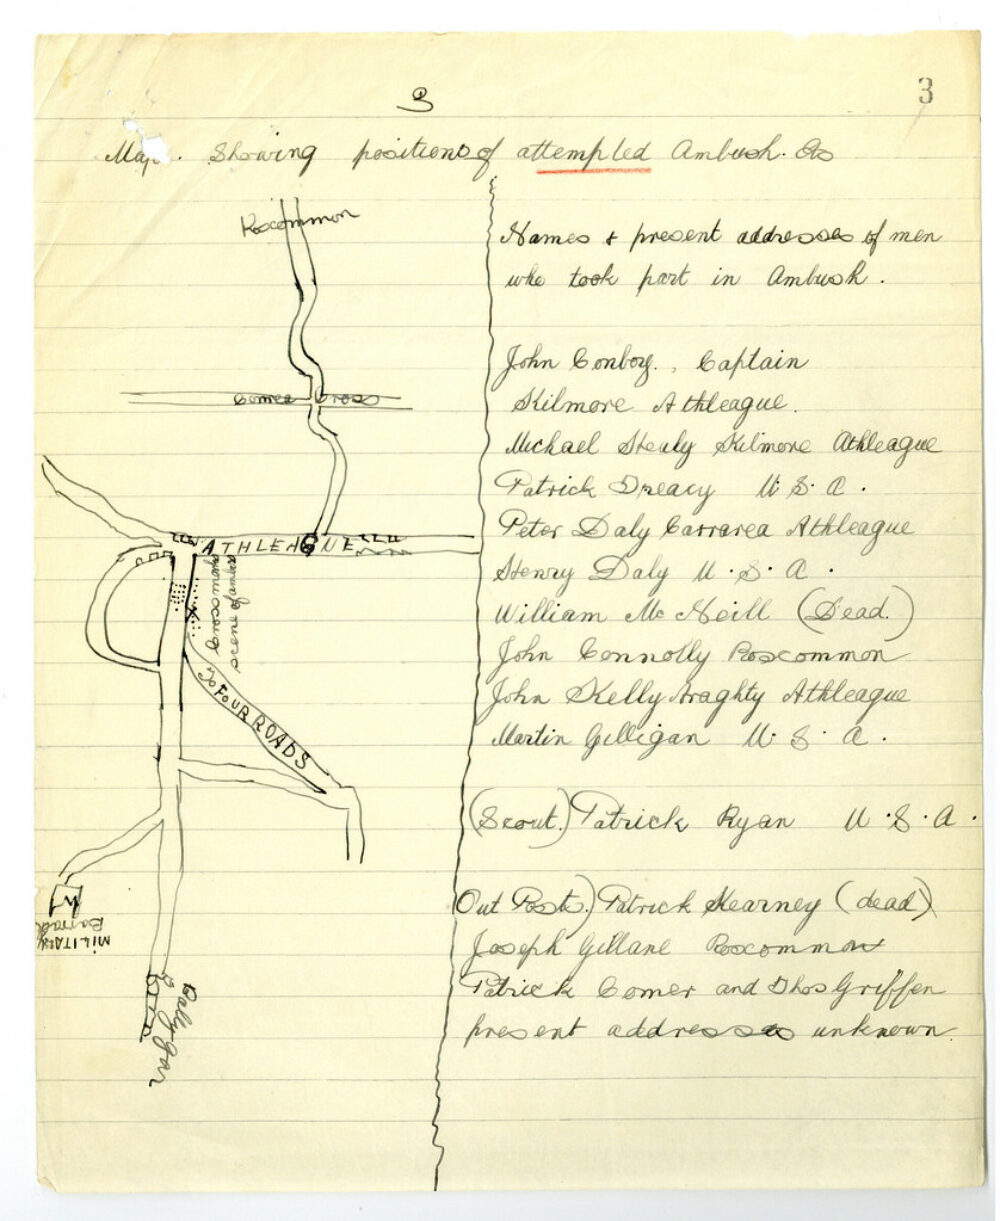 3
3
Map. Showing positions of attempted Ambush. Etc
Roscommon
Comea Cross
ATHLEHGNE
Cross mark
scene of ambush
To FOUR ROADS
MILITARY
Barrack
To
Ballygar
Names & present addresses of men
who took part in Ambush.
John Conboy., Captain
Kilmore Athleague.
Michael Healy Kilmore Athleague
Patrick Treacy U.S.A.
Peter Daly Carrarea Athleague
Henry Daly U.S.A.
William Mc Neill (Dead.)
John Connolly Roscommon
John Kelly Araghty Athleague
Martin Gilligan U.S.A.
(Scout.) Patrick Ryan U.S.A.
Out Posts.) Patrick Kearney (dead)
Joseph Gillane Roscommon
Patrick Comer and Thos Griffen
present addresses unknown.